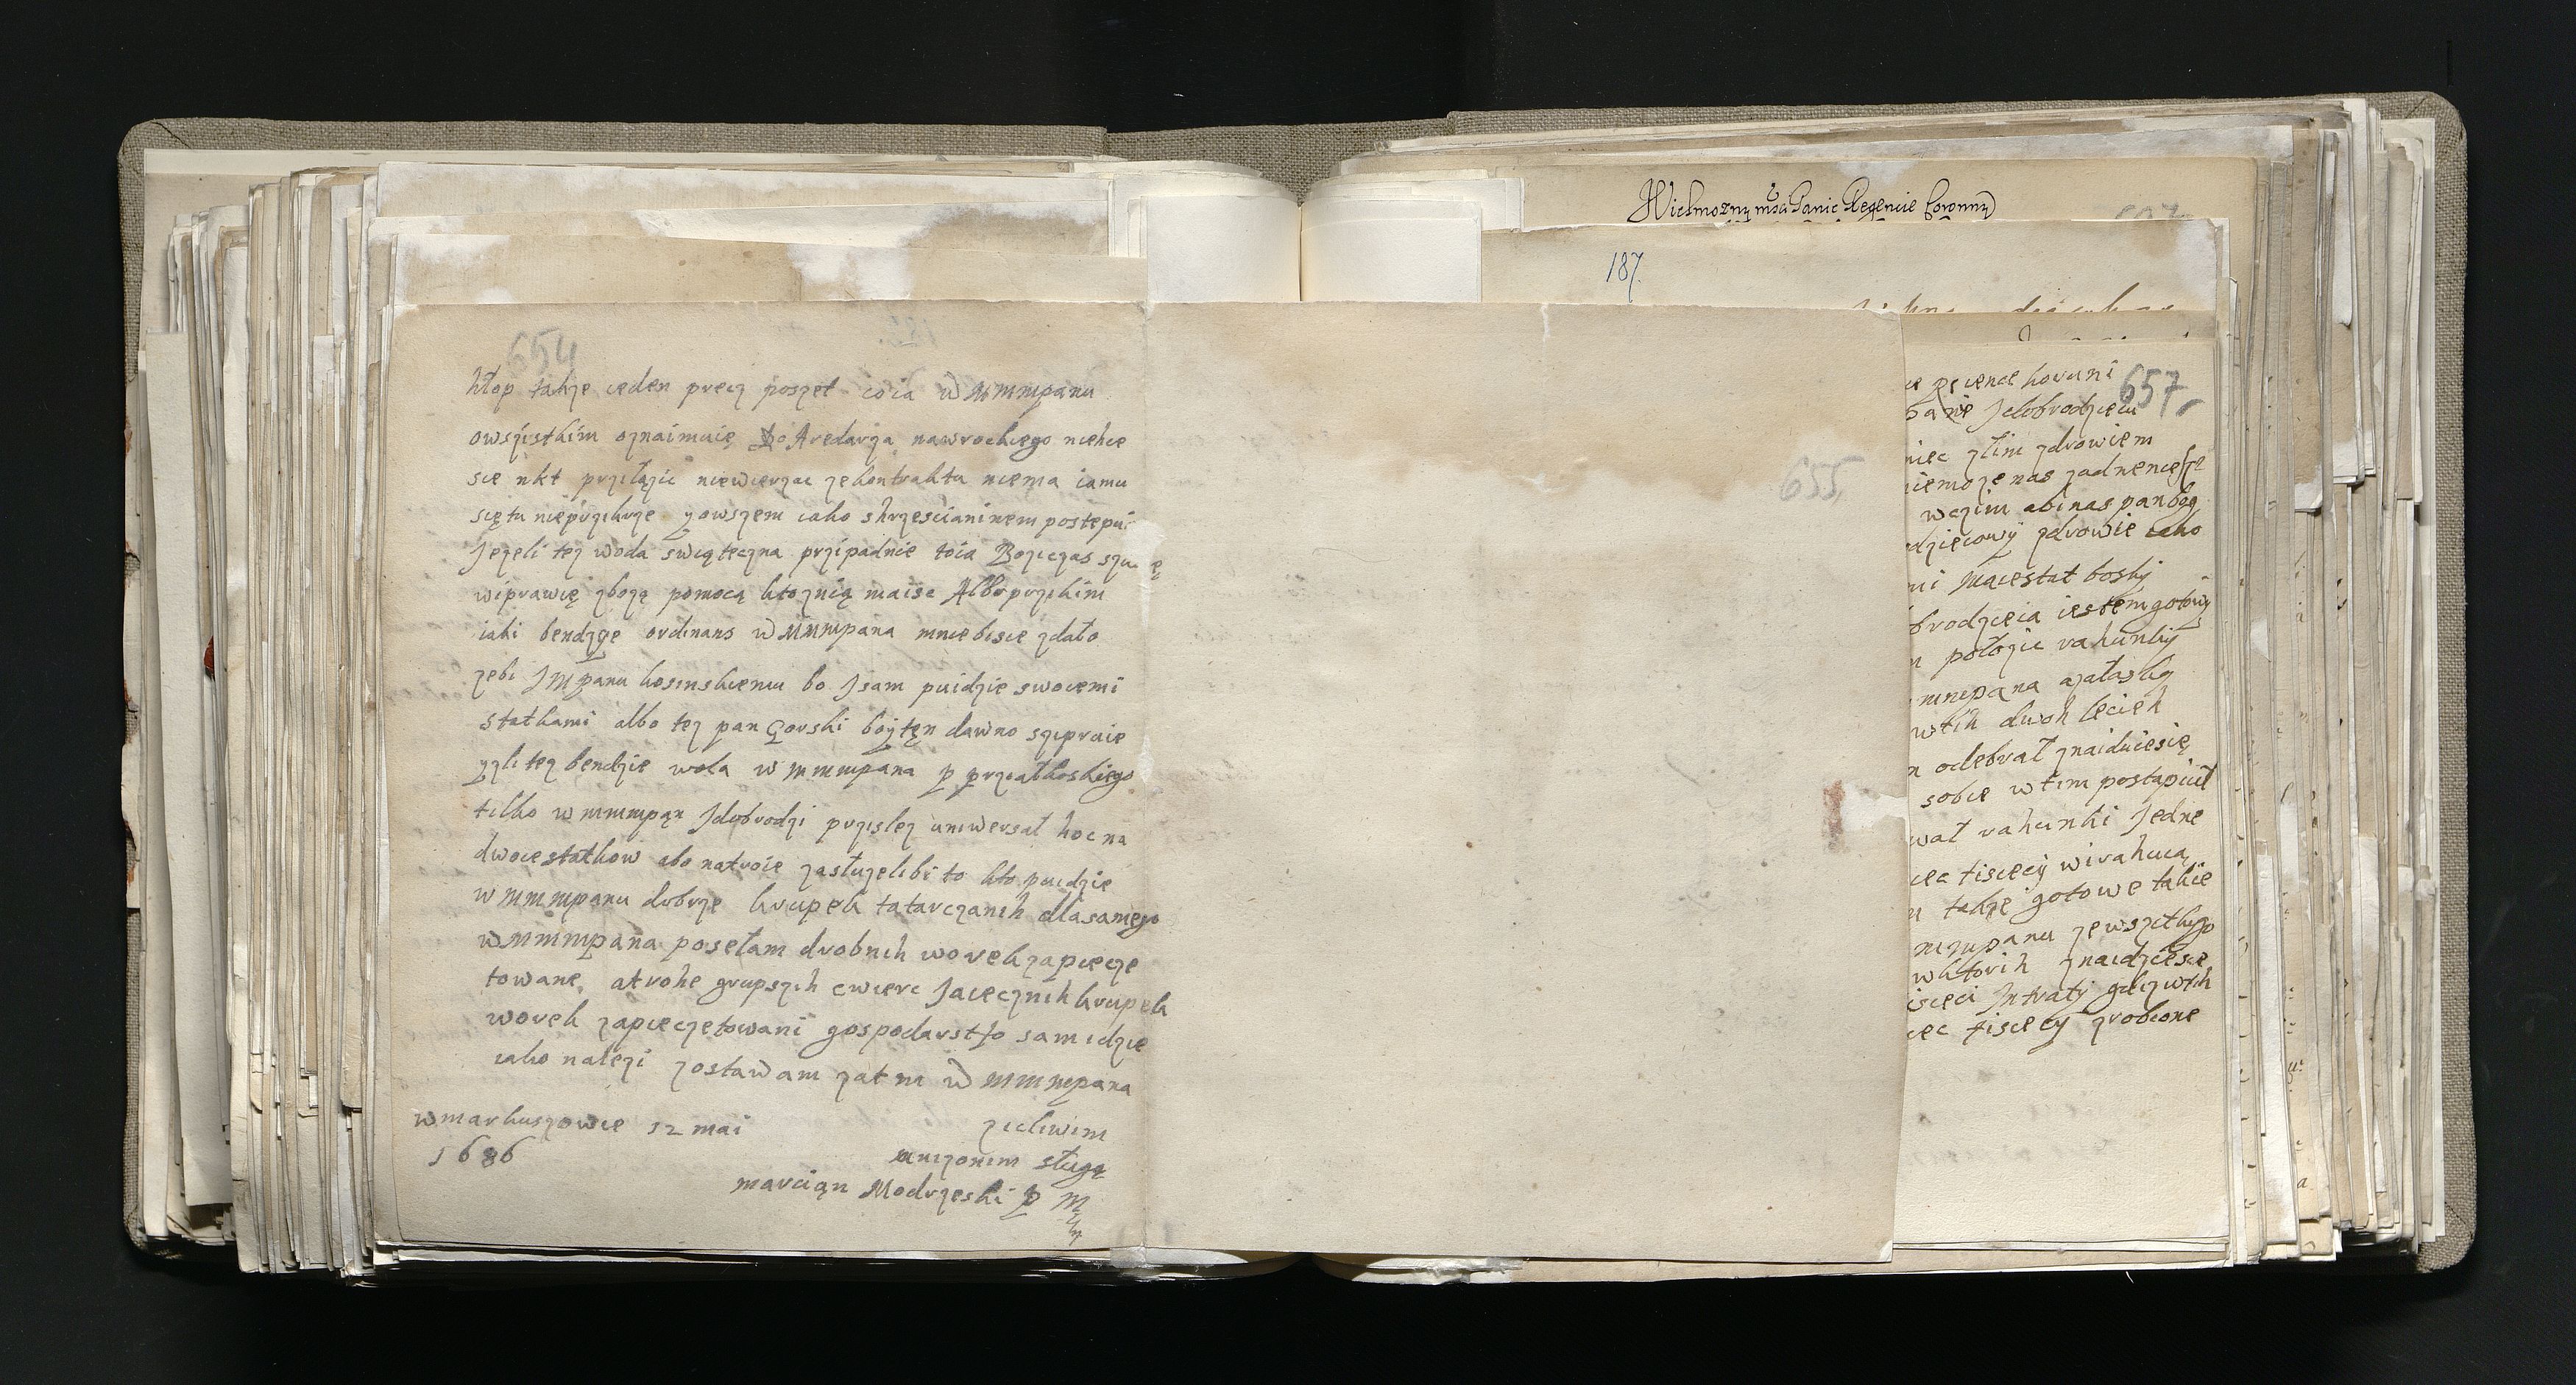 654
hłop takze ieden precz poszet coia w mmmpanu
owszistkim oznaimuię Do Aredarza nawrockiego niehce
sie nkt przilązic niewierzac zekontraktu niema iamu
siętu nieprzikrze y owszem iako skrzescianinem postepui
Jezeli tez woda swiąteczna przipadnie toia Boziczas
wiprawię zbozą pomocą kto znią maisc Albo przikim
iaki bendzęe ordinans w mmmpana mniebisie zdało
zebi Jmpanu kosinskiemu bo Jsam puidzie swoiemi
statkami albo tez pan Gorski boy tęn dawno szipruie
yzli tez bendzie wola w mmmpana p przialkoskiego
tilko w mmmpąn Jdobrodzi przislez uniwersał hoc na
dwoie statkow abo natroie zasłuzelibi to kto puidzie
w mmmpanu dobrze krupek tatarczanih dlasamego
w mmmpana posełam drobnih worek zapiecze
towane, atrohe grupszih cwierc Jaiecznih krupek
worek zapieczetowani gospodarstfo sam idzie
iako nalezi zostawam zat m w mmmpana
wmarkuszowie 12 mai
1686
zicliwim
unizonim sługą
marciąn Modrzeski p m
655
Wielmozny msci Panie Regencie Coronny
187.
657
Jdobrodzieiu
zlim zdrowiem
nas zadnencisze
wczim abinas pan bog
zdrowie iako
maiestat boski
iestem gotowy
połozic rahunky
mmpana azałasky
wtih dwoh lecieh
odebrał znaiduiesię
sobie wtim postąpiuł
rahunki Jedne
tisiecy wirahuią
takze gotowe takie
zewszitkigo
wktorih znaidziesie
Jntraty gdizwtih
tisiecy zrobione